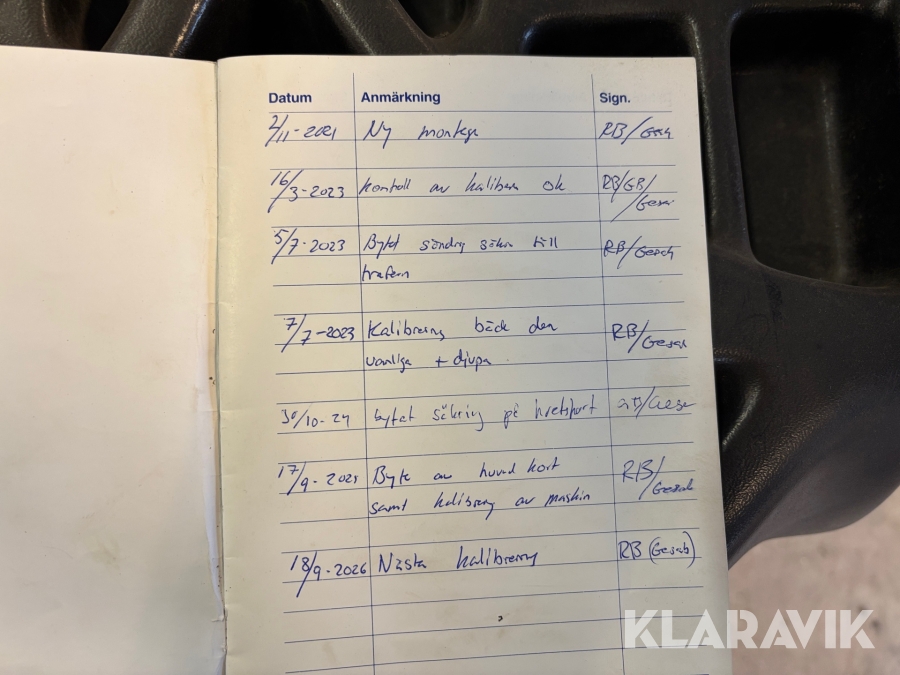 Datum Anmärkning Sign.
2/11-2021 Ny montage RB/Gesab
16/3-2023 kontoll av kalibern ok RB/GB/
Gesab
5/7-2023 Bytet söndrig säkr till RB/Gesab
trafern
7/7-2023 Kalibrering bäck den RB/Gesab
vanliga + djupa
30/10-24 bytat säkring på kretskort
17/9-2025 Byte av huvud kort RB/
samt kalibrering av maskin Gesab
18/9-2026 Nästa kalibrering RB (Gesab)
KLARAVIK